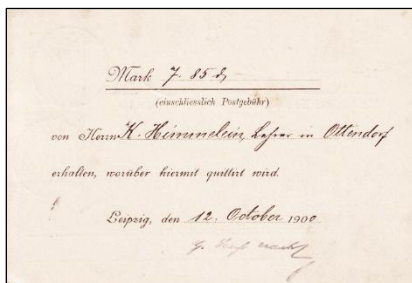 Mark 7. 85 ₰
(einschliesslich Postgebühr)
von Herrn K. Himmelein, Lehrer in Ottendorf
erhalten, worüber hiermit quittirt wird.
Leipzig, den 12. October 1900